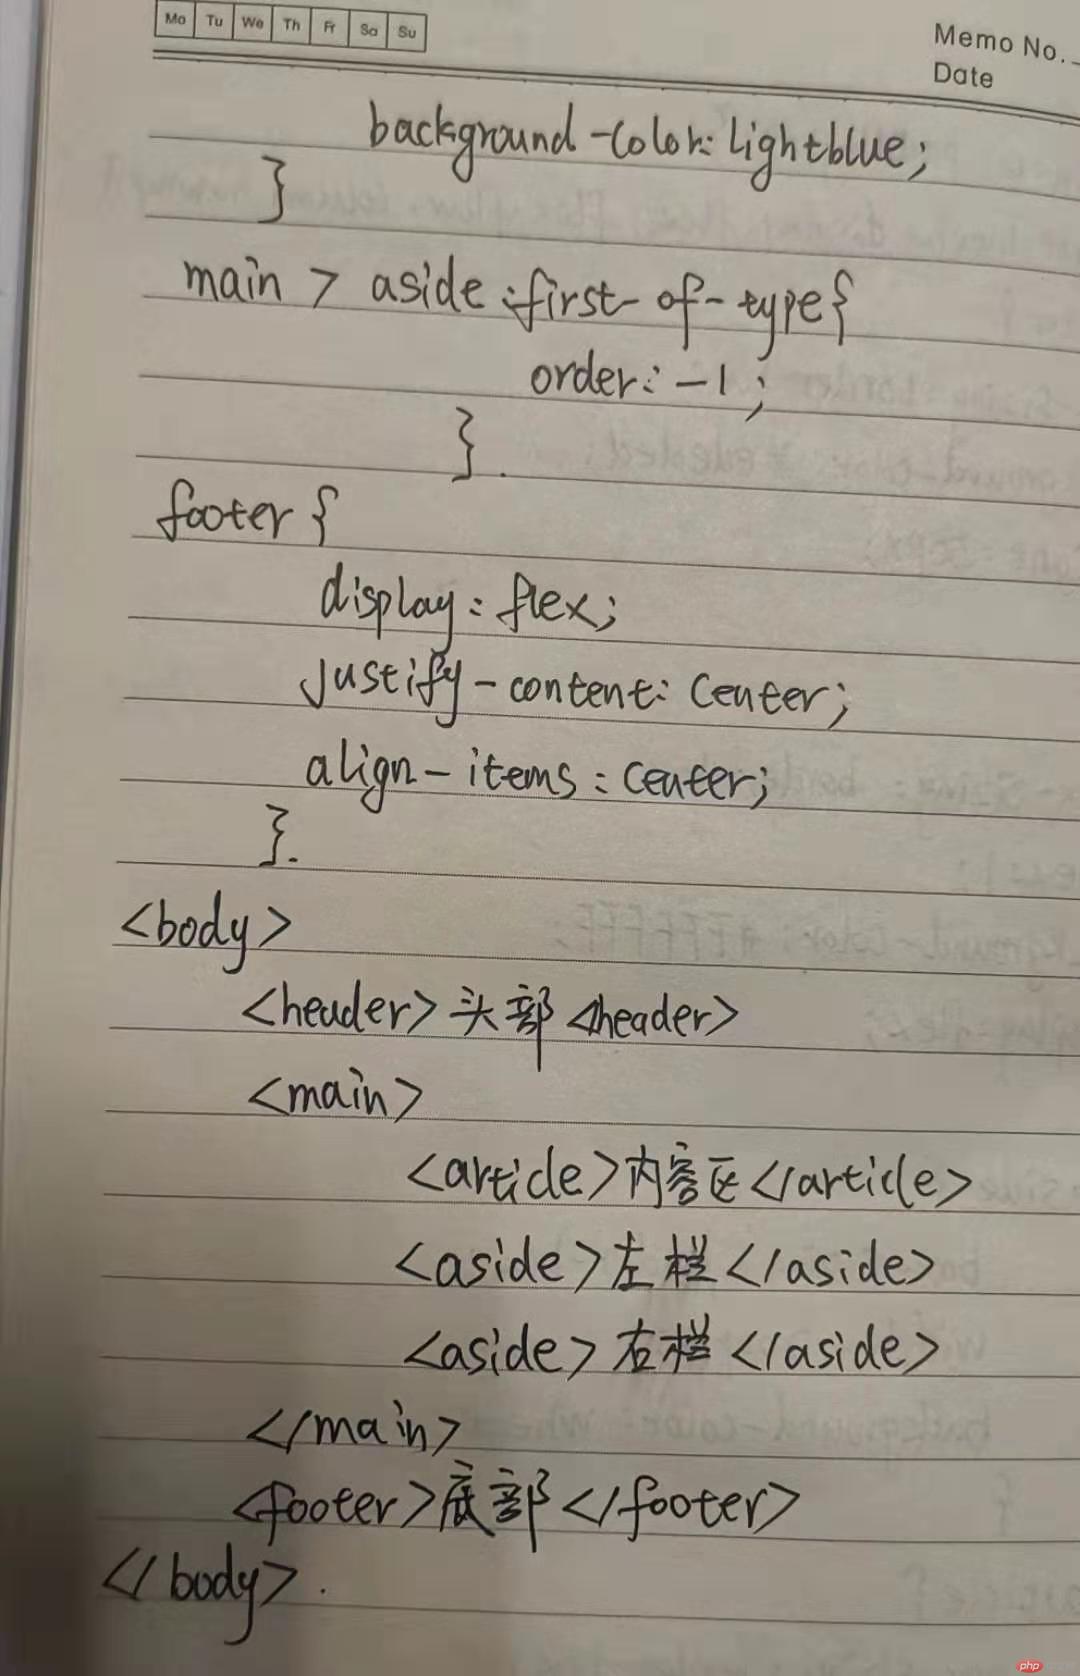 Mo Tu We Th Fr Sa Su
Memo No.
Date
background-color: lightblue;
}
main > aside:first-of-type{
order: -1;
}.
footer {
display: flex;
justify-content: center;
align-items: center;
}.
<body>
<header>头部<header>
<main>
<article>内容区</article>
<aside>左栏</aside>
<aside>右栏</aside>
</main>
<footer>底部</footer>
</body>.
php